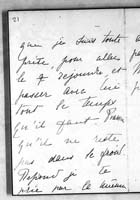 21
que je suis toute
prête pour aller
le rejoindre, et
passer avec lui
tout le temps
qu'il faut
qu'il ne reste
pas dans le
Répond je te
prie par le même